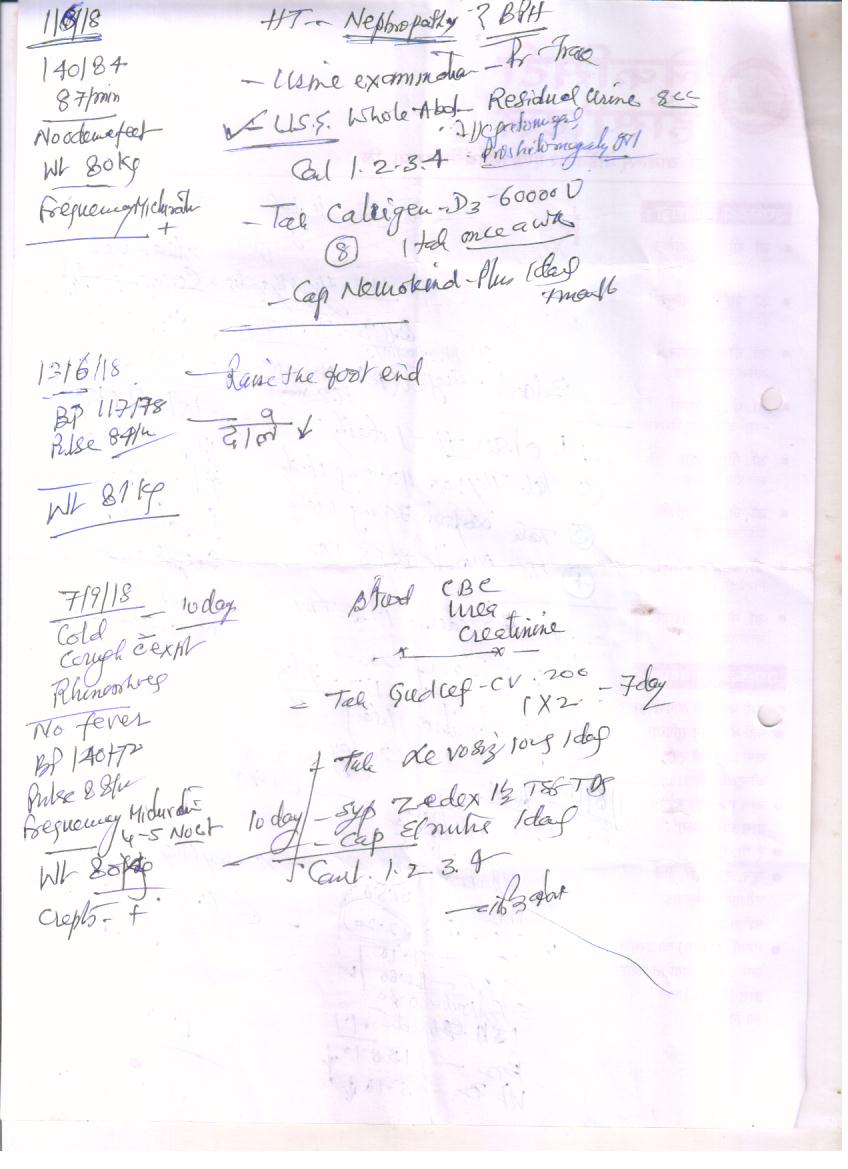 1/6/18
HT - Nephropathy ? BPH
140/84
87/min
- Urine examination - Pr - Trace
No odema feet
✓ U.S.G. Whole Abd - Residual urine 8cc
Prostatomegaly
Wt 80 kg
Cont 1. 2. 3. 4
Frequency Michurati +
- Tab Calcigen - D3 - 60000 U
⑧ 1 tab once a wk
- Cap Nemokind - Plus 1 day
13/6/18
- Raise the foot end
BP 117/78
Pulse 84/m
Wt 81 kg
7/9/18 - 10 day
Cold
Cough c expt
Rhinorrhea
No fever
BP 140/72
Pulse 88/m
Frequency Michurati
4-5 Noct
Wt 80 kg
Crepts - +
Blood CBC
Urea
Creatinine
- Tab Gudcef - CV . 200
1 X 2 - 7 day
Tab Levosiz 10mg 1 day
10 day - Syp Zedex 1½ TSF TDS
- Cap 1 day
Cont. 1. 2 3. 4